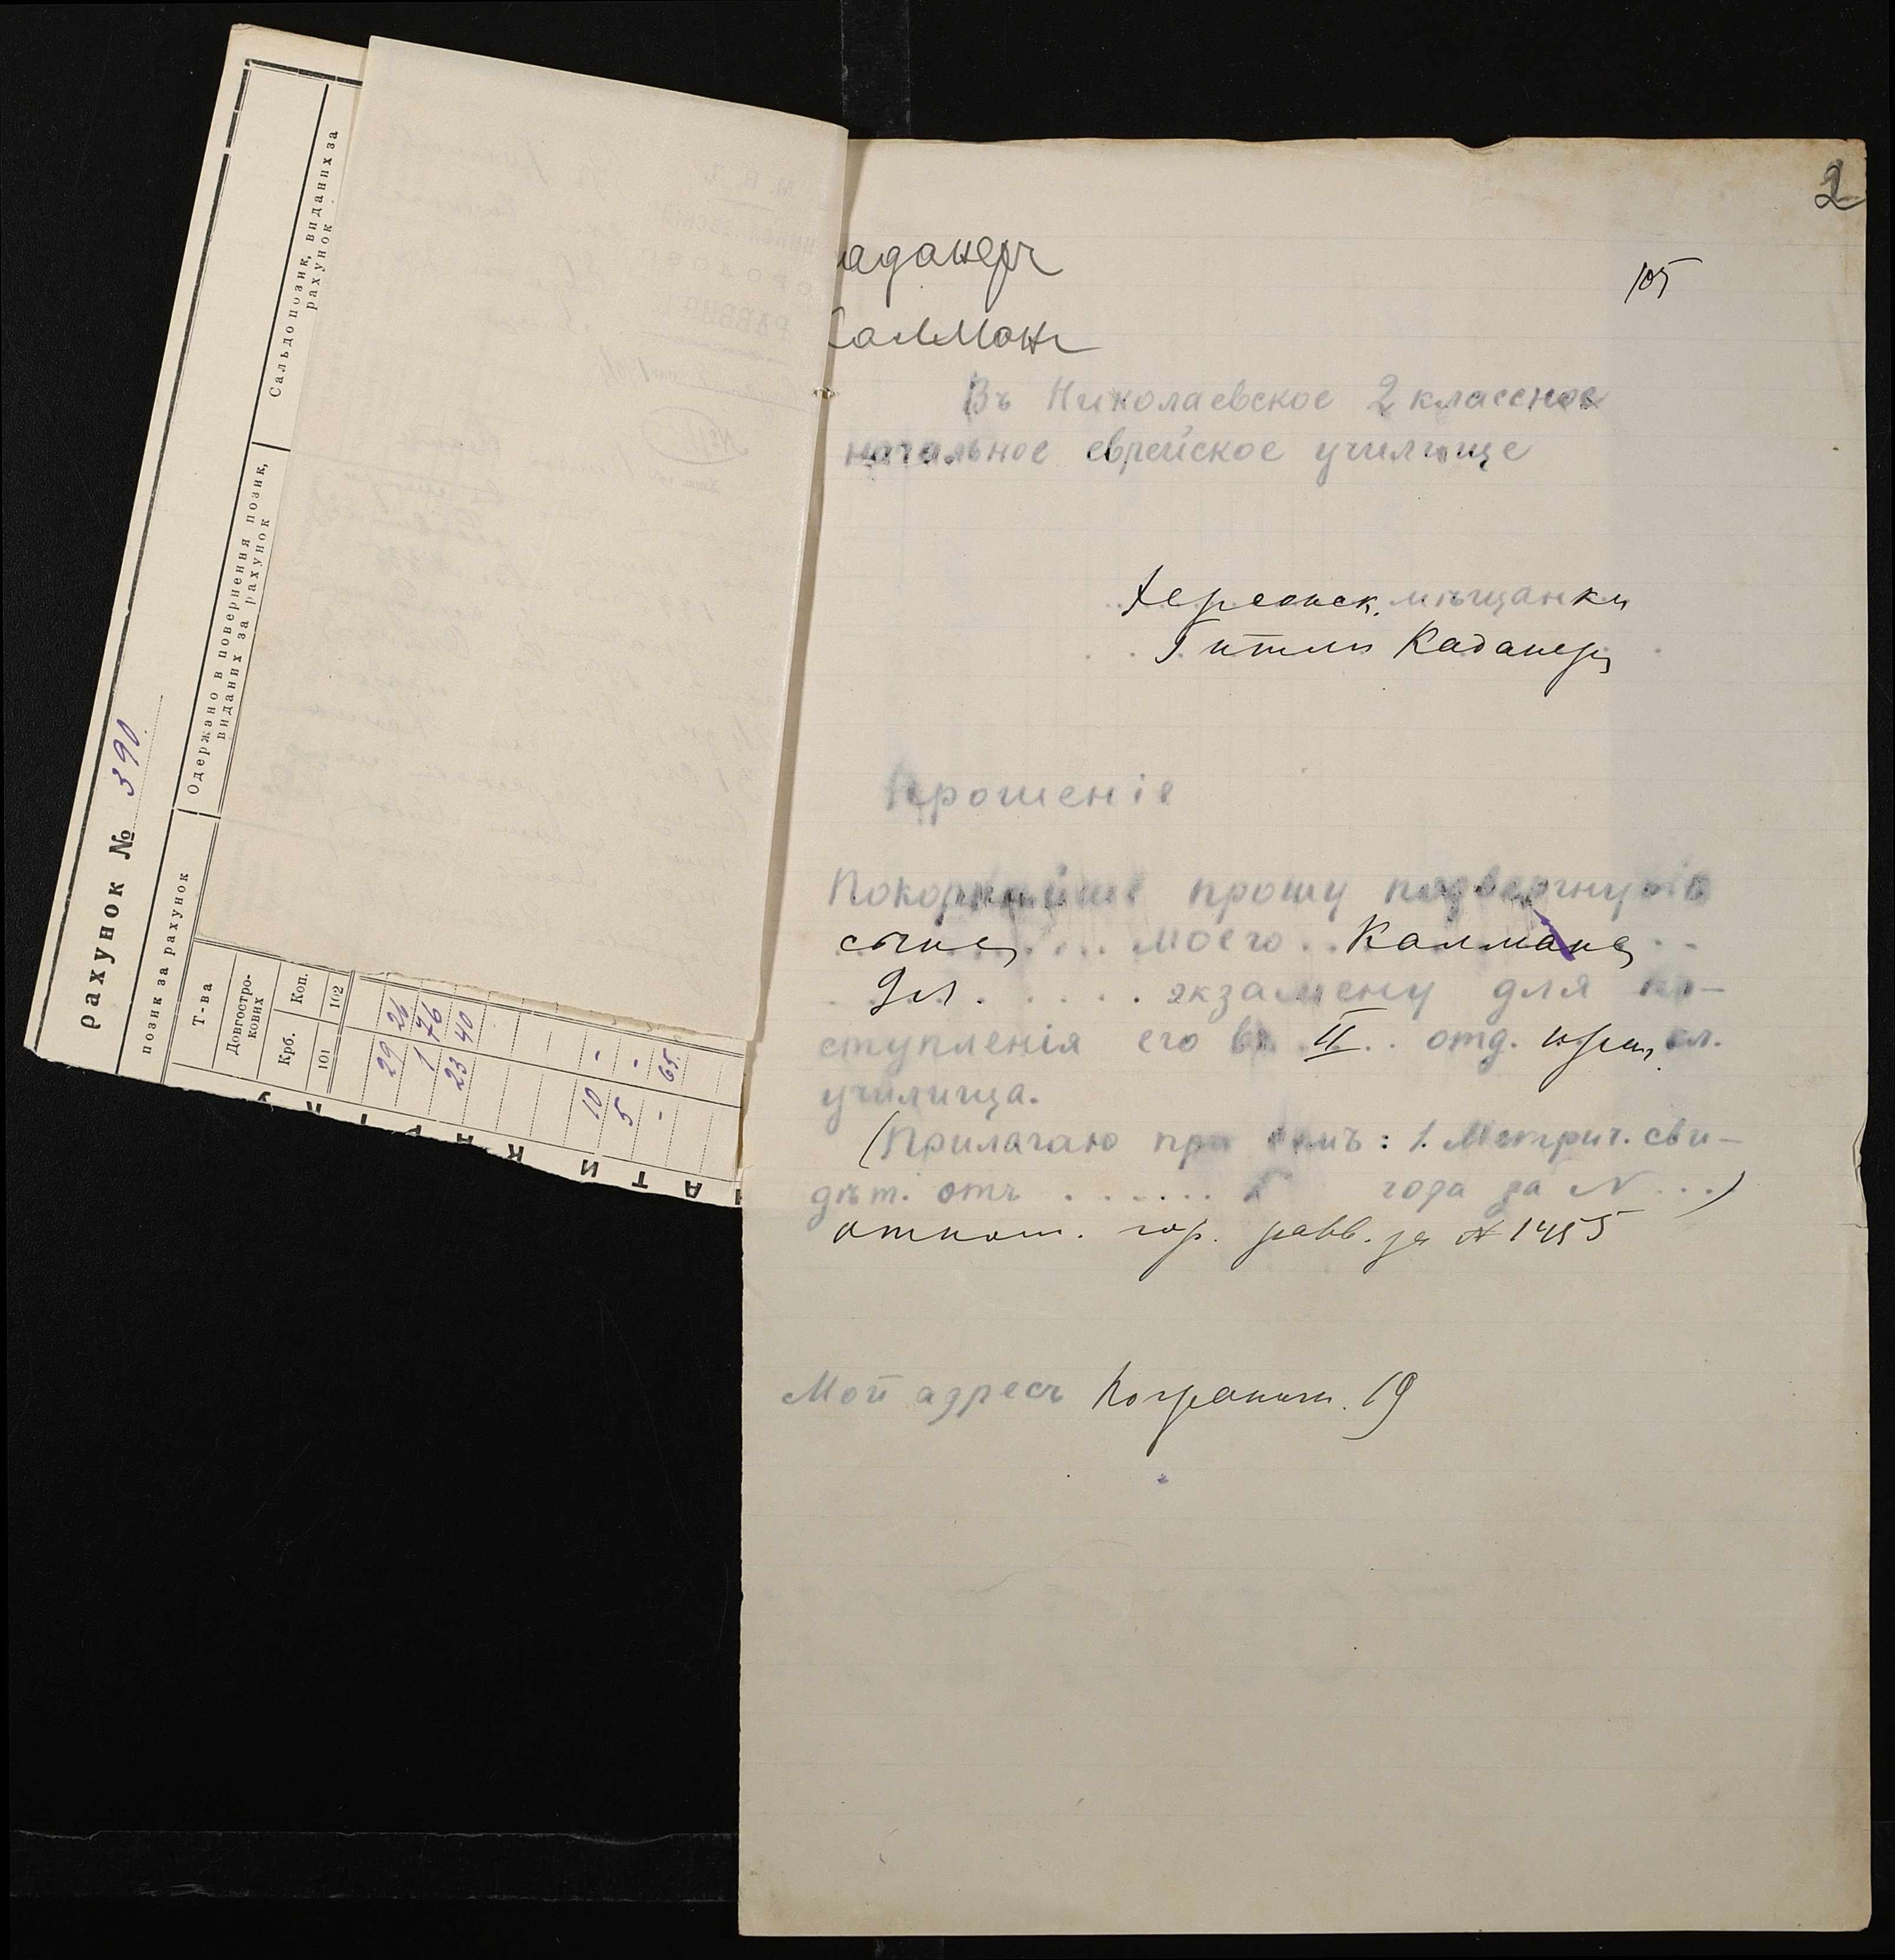 рахунок № 390
позик за рахунок
Одержано в повернення позик,
виданих за рахунок
Сальдо позик, виданих за
рахунок
Т-ва
Довгостро-
кових
Крб.
Коп.
101
102
29 26
1 76
23 40
10 -
5 -
- 65
2
105
аданеръ
Калманъ
Въ Николаевское 2 классное
начальное еврейское училище
Херсонск. мѣщанки
Гитли Каданеръ
Прошеніе
Покорнѣйше прошу подвергнуть
сына моего Калмана
9 л. экзамену для по-
ступленія его въ II отд. кл.
училища.
(Прилагаю при семъ: 1. Метрич. сви-
дѣт. отъ ...... г года за N ...)
отнош. гор. равв. за №1455
Мой адресъ Погранич. 19